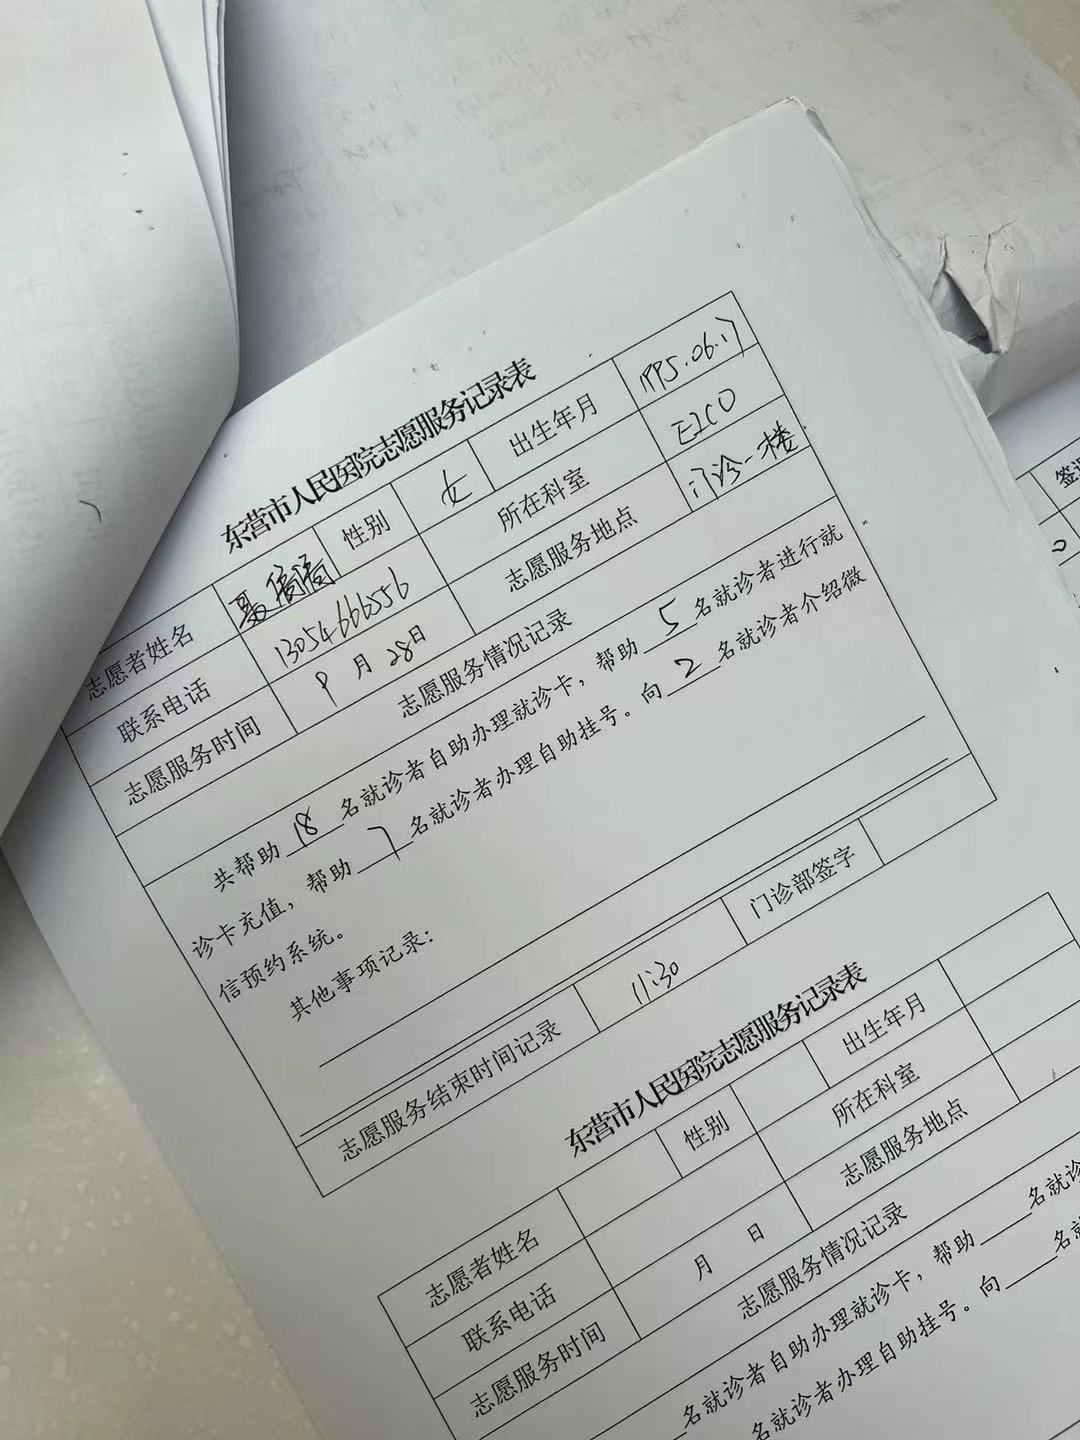 东营市人民医院志愿服务记录表
志愿者姓名 聂倩倩 性别 女 出生年月 1995.06.17
联系电话 13054666556 所在科室 EICU
志愿服务时间 9月28日 志愿服务地点 门诊一楼
志愿服务情况记录
共帮助18名就诊者自助办理就诊卡，帮助5名就诊者进行就
诊卡充值，帮助7名就诊者办理自助挂号。向2名就诊者介绍微
信预约系统。
其他事项记录：
志愿服务结束时间记录 11:30 门诊部签字
东营市人民医院志愿服务记录表
志愿者姓名 性别 出生年月
联系电话 所在科室
志愿服务时间 月 日 志愿服务地点
志愿服务情况记录
名就诊者自助办理就诊卡，帮助 名就诊
名就诊者办理自助挂号。向 名就